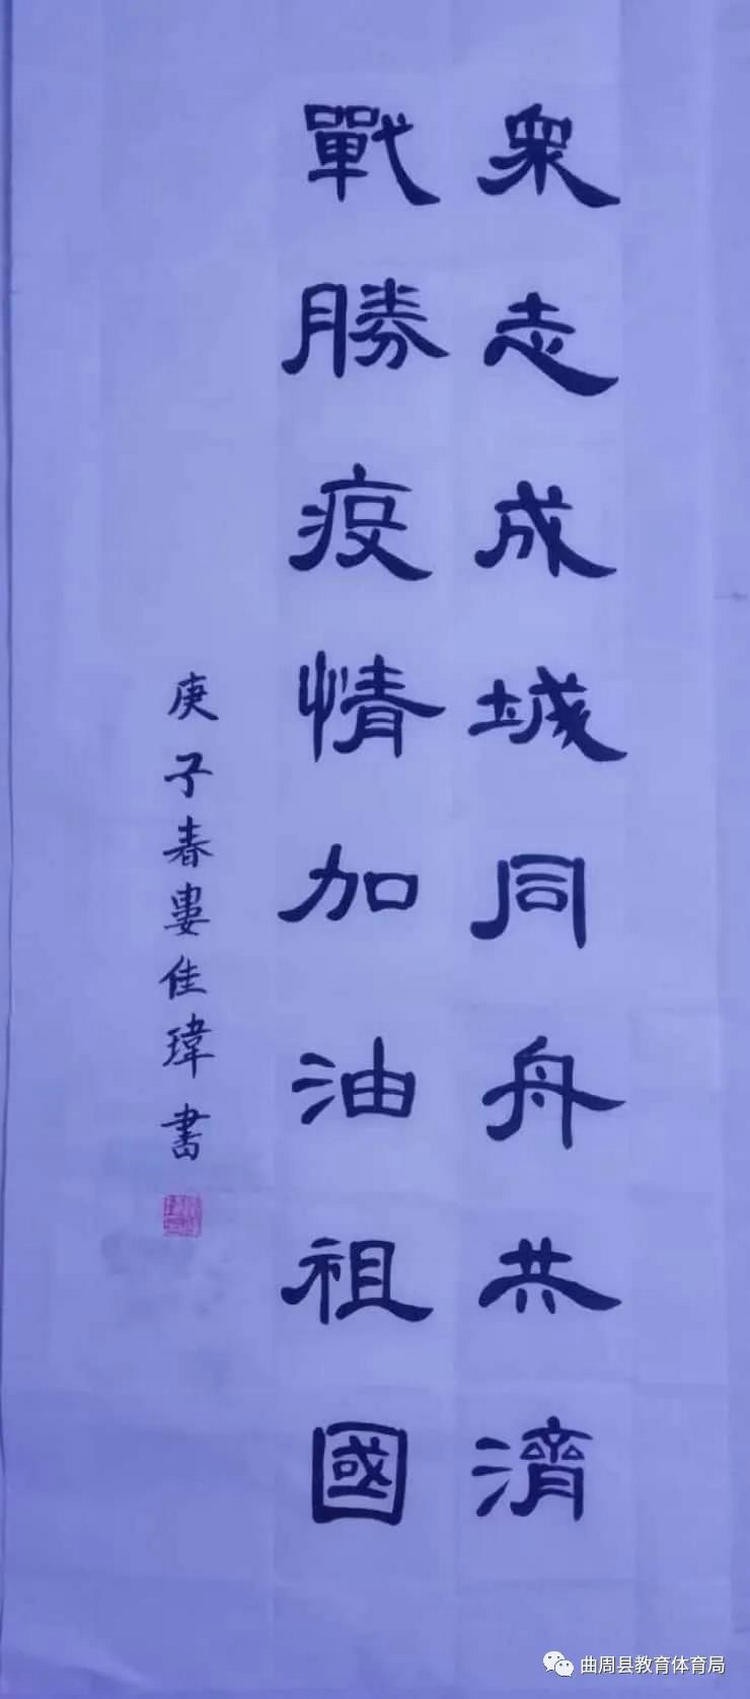 衆志成城同舟共濟
戰勝疫情加油祖國
庚子春婁佳瑋書
曲周县教育体育局